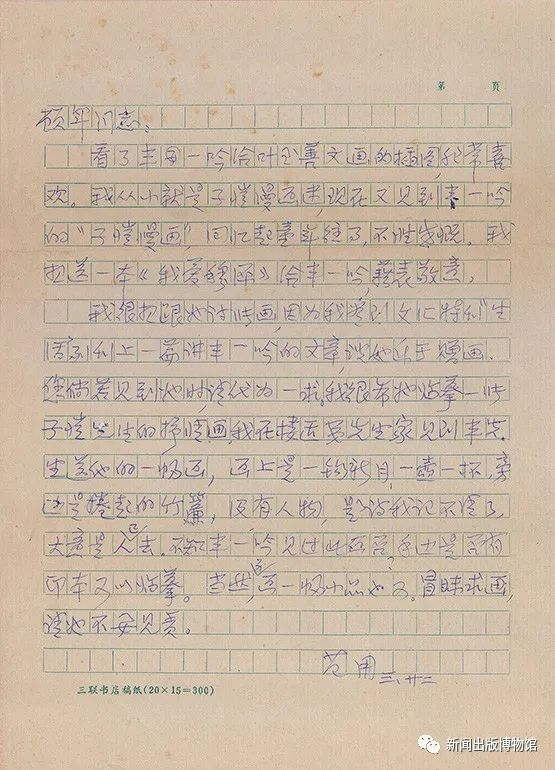 第 页
颀年同志：
看了丰一吟给叶至善文画的插图，非常喜
欢。我从小就是子恺漫画迷，现在又见到丰一吟
的“子恺漫画”，回忆起童年往事，不胜感慨。我
想送一本《我爱穆源》给丰一吟，藉表敬意。
我很想跟她讨张画，因为我看到文汇特刊“生
活副刊上一篇讲丰一吟的文章，说她乐于赠画。
您倘若见到她时，请代为一求，我很希她临摹一张
子恺先生的抒情画，我在楼适夷先生家见到丰先
生送他的一幅画，画上是一钩新月，一壶一杯，旁
边是捲起的竹簾，没有人物，题诗我记不清了，
大意是人已去。不知丰一吟见过此画否？手边是否有
印本可以临摹。当然，画一幅小品也可。冒昧求画，
请她不要见责。
范用 三、廿二
三联书店稿纸(20×15=300)
新闻出版博物馆